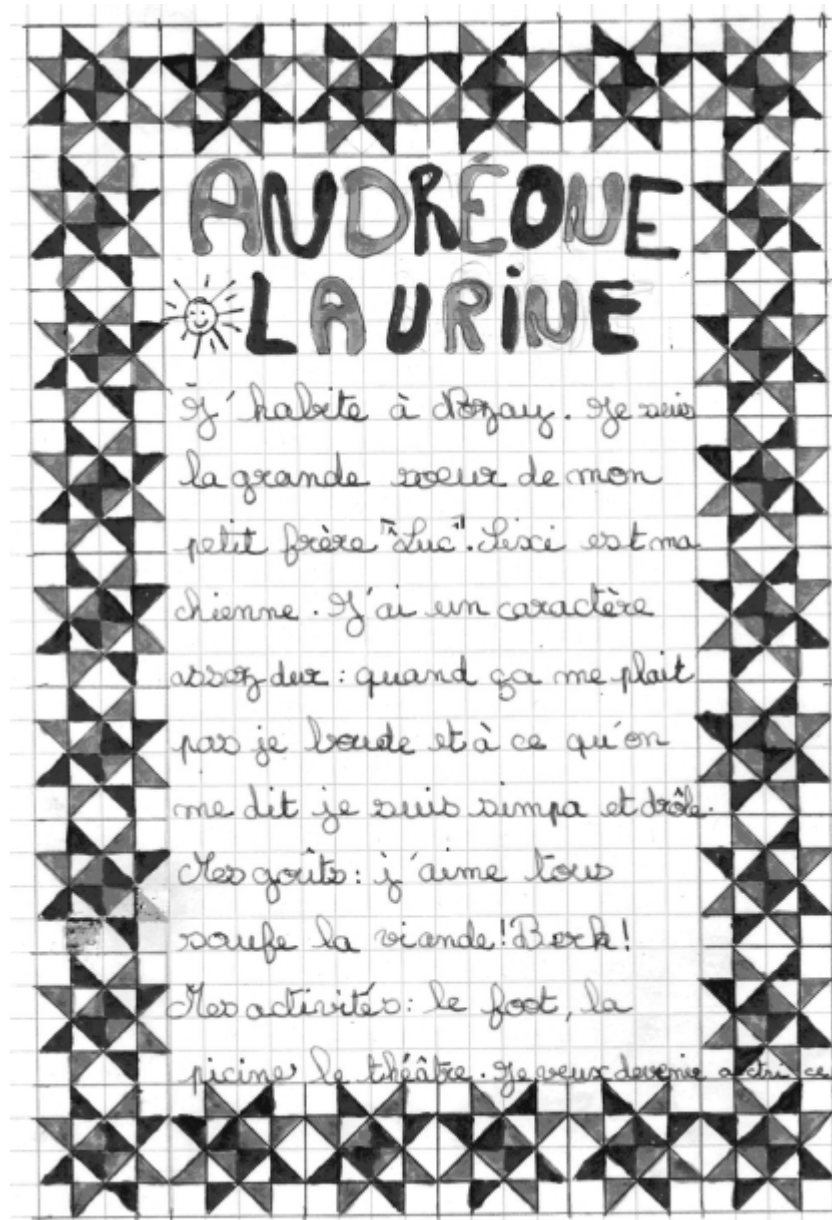 ANDRÉONE
LAURINE
J'habite à Nozay. Je suis
la grande soeur de mon
petit frère "Luc". Lixi est ma
chienne. J'ai un caractère
assez dur : quand ça me plait
pas je boude et à ce qu'on
me dit je suis simpa et drôle.
Mes goûts : j'aime tous
soufe la viande ! Berk !
Mes activités : le foot, la
picine, le théâtre. Je veux devenir actrice